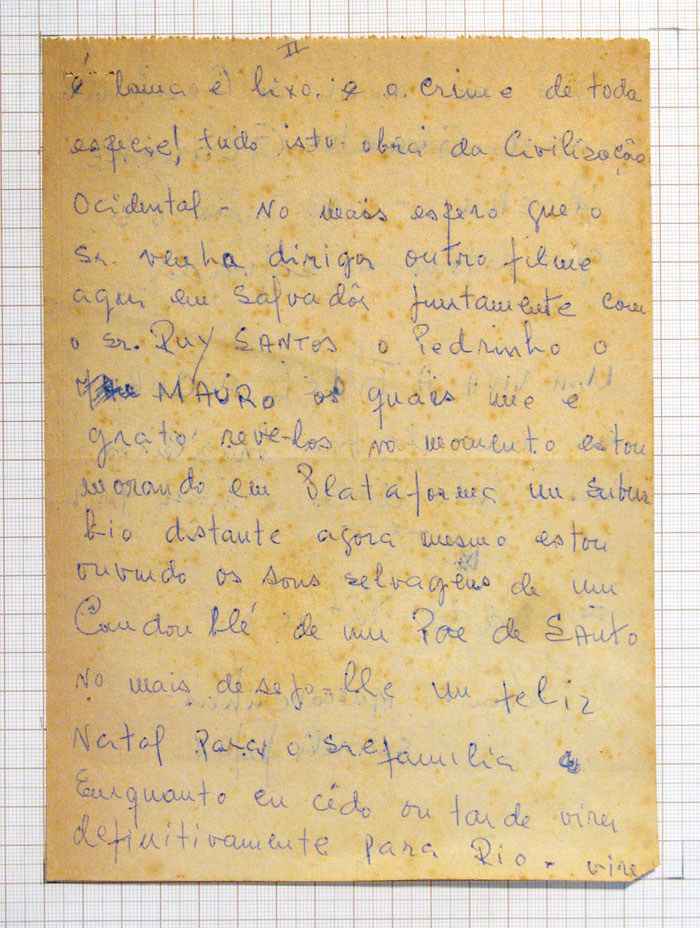 II
é lama é lixo. e o. crime de toda
especie! tudo isto obra da Civilização
Ocidental - No mais espero que o
Sr. venha dirigir outro filme
aqui em Salvadôr juntamente com
o Sr. RUY SANTOS o Pedrinho o
MAURO os quais me é
grato revê-los no momento estou
morando em Plataforma um subur
bio distante agora mesmo estou
ouvindo os sons selvagens de um
Candomblé de um Pae de SANTO
No mais desejo-lhe um feliz
Natal Para o Sr e familia
Enquanto eu cêdo ou tarde virei
definitivamente para Rio - vire